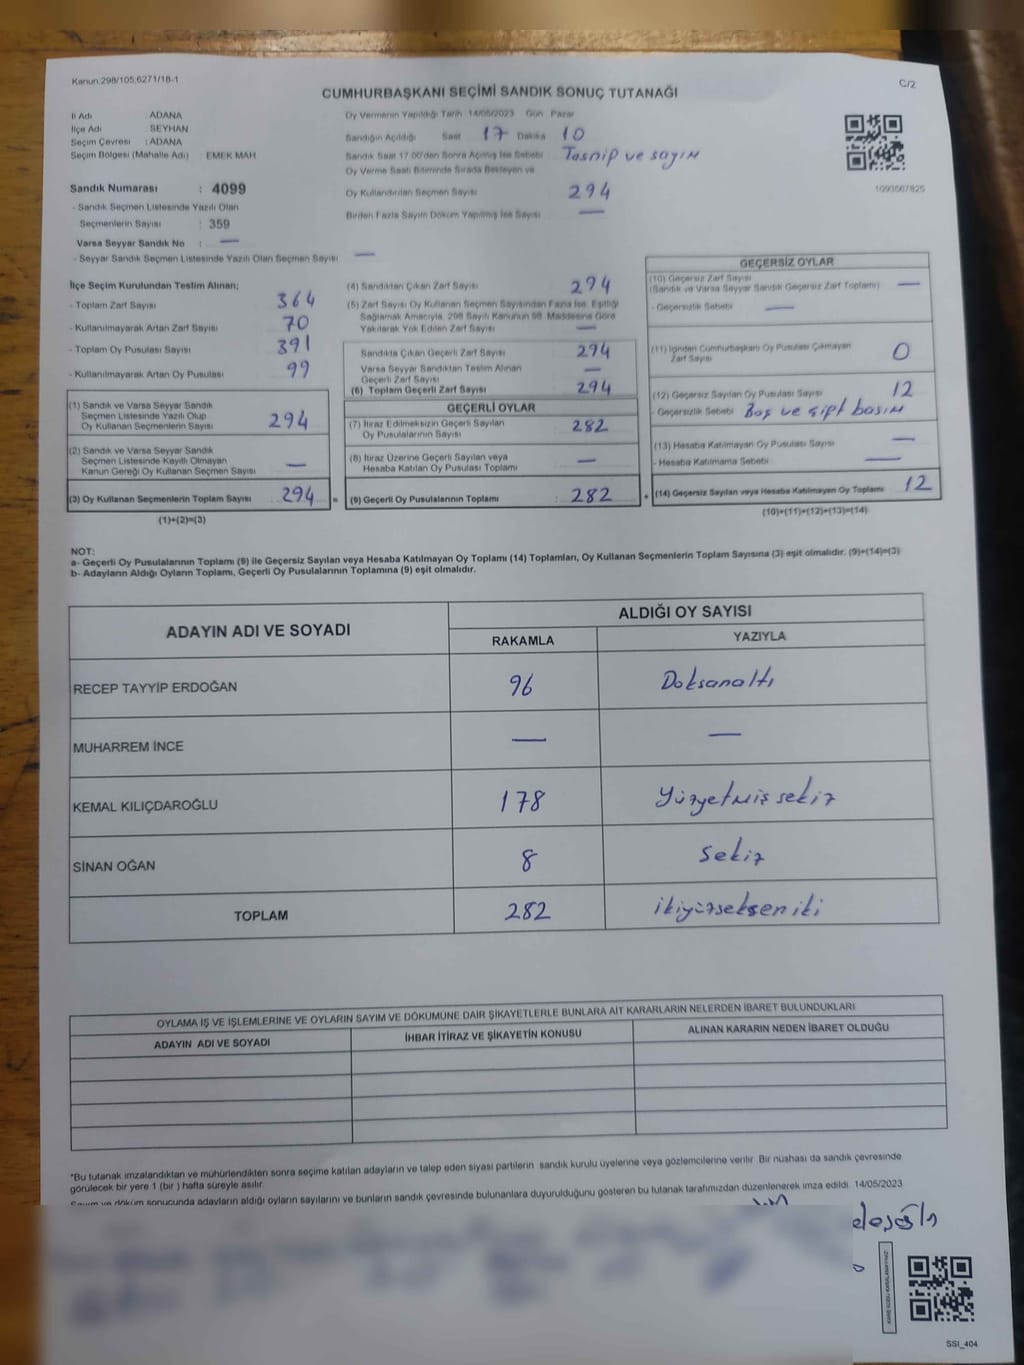 Kanun:298/105,6271/18-1
C/2
CUMHURBAŞKANI SEÇİMİ SANDIK SONUÇ TUTANAĞI
İl Adı : ADANA
İlçe Adı : SEYHAN
Seçim Çevresi : ADANA
Seçim Bölgesi (Mahalle Adı) : EMEK MAH
Sandık Numarası : 4099
- Sandık Seçmen Listesinde Yazılı Olan
Seçmenlerin Sayısı : 359
Varsa Seyyar Sandık No : —
- Seyyar Sandık Seçmen Listesinde Yazılı Olan Seçmen Sayısı —
Oy Vermenin Yapıldığı Tarih 14/05/2023 Gün Pazar
Sandığın Açıldığı Saat 17 Dakika 10
Sandık Saat 17.00'den Sonra Açılmış İse Sebebi Tasnip ve sayım
Oy Verme Saati Bitiminde Sırada Bekleyen ve
Oy Kullandırılan Seçmen Sayısı 294
Birden Fazla Sayım Döküm Yapılmış İse Sayısı —
1093567825
İlçe Seçim Kurulundan Teslim Alınan;
- Toplam Zarf Sayısı 364
- Kullanılmayarak Artan Zarf Sayısı 70
- Toplam Oy Pusulası Sayısı 391
- Kullanılmayarak Artan Oy Pusulası 99
(1) Sandık ve Varsa Seyyar Sandık
Seçmen Listesinde Yazılı Olup
Oy Kullanan Seçmenlerin Sayısı 294
(2) Sandık ve Varsa Seyyar Sandık
Seçmen Listesinde Kayıtlı Olmayan
Kanun Gereği Oy Kullanan Seçmen Sayısı —
(3) Oy Kullanan Seçmenlerin Toplam Sayısı 294 =
(1)+(2)=(3)
(4) Sandıktan Çıkan Zarf Sayısı 294
(5) Zarf Sayısı Oy Kullanan Seçmen Sayısından Fazla İse, Eşitliği
Sağlamak Amacıyla, 298 Sayılı Kanunun 98. Maddesine Göre
Yakılarak Yok Edilen Zarf Sayısı —
Sandıkta Çıkan Geçerli Zarf Sayısı 294
Varsa Seyyar Sandıktan Teslim Alınan
Geçerli Zarf Sayısı —
(6) Toplam Geçerli Zarf Sayısı 294
GEÇERLİ OYLAR
(7) İtiraz Edilmeksizin Geçerli Sayılan
Oy Pusulalarının Sayısı 282
(8) İtiraz Üzerine Geçerli Sayılan veya
Hesaba Katılan Oy Pusulası Toplamı —
(9) Geçerli Oy Pusulalarının Toplamı : 282 +
GEÇERSİZ OYLAR
(10) Geçersiz Zarf Sayısı
(Sandık ve Varsa Seyyar Sandık Geçersiz Zarf Toplamı) —
- Geçersizlik Sebebi —
(11) İçinden Cumhurbaşkanı Oy Pusulası Çıkmayan
Zarf Sayısı 0
(12) Geçersiz Sayılan Oy Pusulası Sayısı 12
- Geçersizlik Sebebi Boş ve çipt basım
(13) Hesaba Katılmayan Oy Pusulası Sayısı —
- Hesaba Katılmama Sebebi —
(14) Geçersiz Sayılan veya Hesaba Katılmayan Oy Toplamı 12
(10)+(11)+(12)+(13)=(14)
NOT:
a- Geçerli Oy Pusulalarının Toplamı (9) ile Geçersiz Sayılan veya Hesaba Katılmayan Oy Toplamı (14) Toplamları, Oy Kullanan Seçmenlerin Toplam Sayısına (3) eşit olmalıdır. (9)+(14)=(3)
b- Adayların Aldığı Oyların Toplamı, Geçerli Oy Pusulalarının Toplamına (9) eşit olmalıdır.
ADAYIN ADI VE SOYADI
ALDIĞI OY SAYISI
RAKAMLA YAZIYLA
RECEP TAYYİP ERDOĞAN 96 Doksanaltı
MUHARREM İNCE — —
KEMAL KILIÇDAROĞLU 178 Yüzyetmiş sekiz
SİNAN OĞAN 8 Sekiz
TOPLAM 282 ikiyüzseksen iki
OYLAMA İŞ VE İŞLEMLERİNE VE OYLARIN SAYIM VE DÖKÜMÜNE DAİR ŞİKAYETLERLE BUNLARA AİT KARARLARIN NELERDEN İBARET BULUNDUKLARI
ADAYIN ADI VE SOYADI İHBAR İTİRAZ VE ŞİKAYETİN KONUSU ALINAN KARARIN NEDEN İBARET OLDUĞU
*Bu tutanak imzalandıktan ve mühürlendikten sonra seçime katılan adayların ve talep eden siyasi partilerin sandık kurulu üyelerine veya gözlemcilerine verilir. Bir nüshası da sandık çevresinde
görülecek bir yere 1 (bir ) hafta süreyle asılır.
Sayım ve döküm sonucunda adayların aldığı oyların sayılarını ve bunların sandık çevresinde bulunanlara duyurulduğunu gösteren bu tutanak tarafımızdan düzenlenerek imza edildi. 14/05/2023
SSI_404